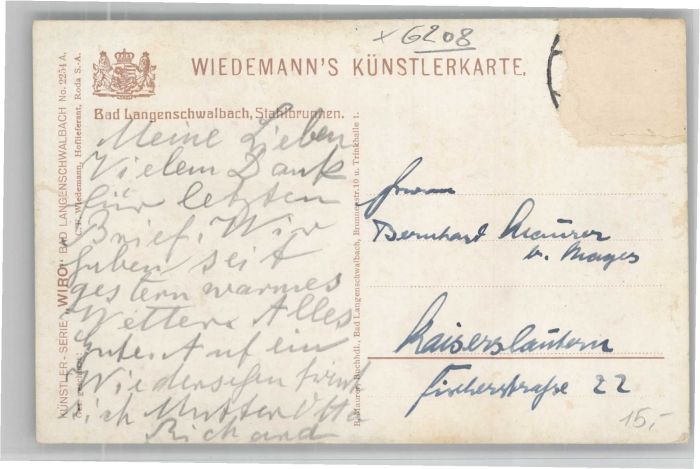 × 6208
WIEDEMANN'S KÜNSTLERKARTE.
Bad Langenschwalbach, Stahlbrunnen.
KÜNSTLER-SERIE „WIRO" BAD LANGENSCHWALBACH No. 2254 A.
Wiedemann, Hoflieferant, Roda S.-A.
Meine Lieben
Vielem Dank
für letzten
Brief. Wir
haben seit
gestern warmes
Wetter. Alles
Gute. Auf ein
Wiedersehen
ich Mutter Otto
Richard
Buchhdl., Bad Langenschwalbach, Brunnenstr. 10 u. Trinkhalle 1.
Herrn
Bernhard Maurer
b. Mayes
Kaiserslautern
Fischerstraße 22
15,-